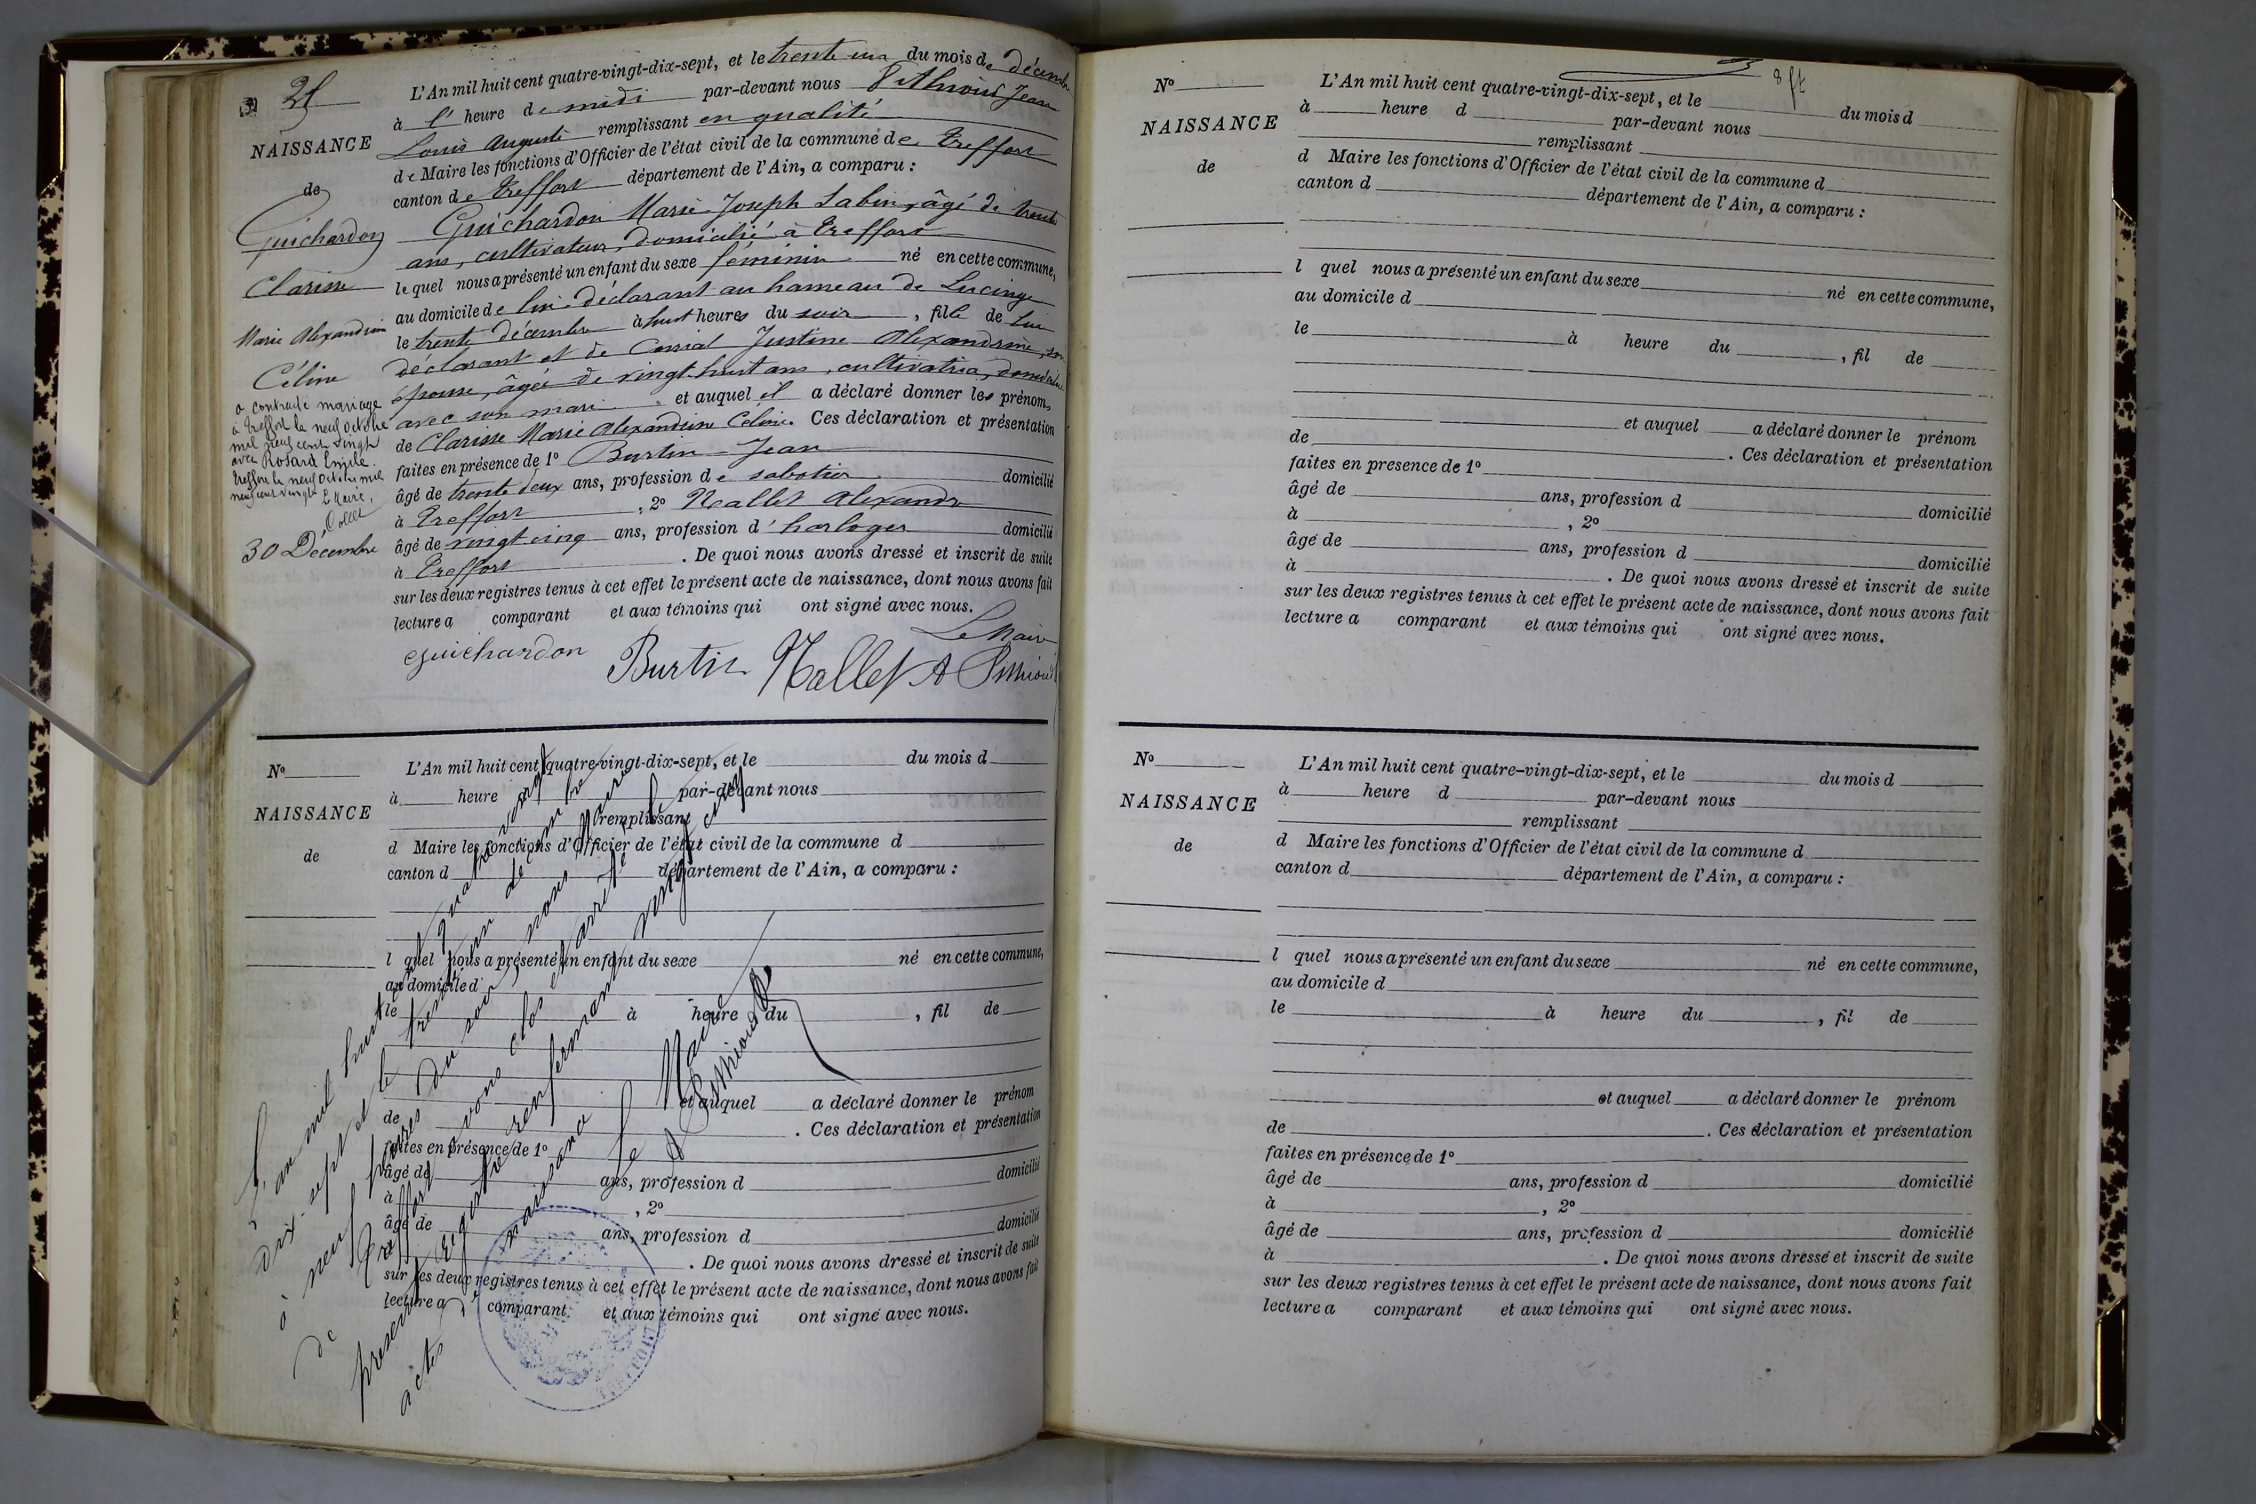 NAISSANCE
de
Guichardon
Clarisse
Marie Alexandrine
Céline
a contracté mariage
à Treffort le neuf octobre
mil neuf cent vingt
avec Rosard Emile.
Treffort le neuf octobre mil
neuf cent vingt Le Maire,
30 Décembre
L'An mil huit cent quatre-vingt-dix-sept, et le trente un du mois de décembre
à l' heure de midi par-devant nous Pithioud Jean
Louis Auguste remplissant en qualité
de Maire les fonctions d'Officier de l'état civil de la commune de Treffort
canton de Treffort département de l'Ain, a comparu :
Guichardon Marie Joseph Sabin, âgé de trente
ans, cultivateur, domicilié à Treffort
lequel nous a présenté un enfant du sexe féminin né en cette commune,
au domicile de lui déclarant au hameau de Lucinge
le trente décembre à huit heures du soir, fille de lui
déclarant et de Justine Alexandrine, son
épouse, âgée de vingt-huit ans, cultivatrice, domiciliée
avec son mari et auquel il a déclaré donner les prénoms
de Clarisse Marie Alexandrine Céline. Ces déclaration et présentation
faites en présence de 1° Burtin Jean
âgé de trente deux ans, profession de sabotier domicilié
à Treffort, 2° Nallet Alexandre
âgé de vingt cinq ans, profession d'horloger domicilié
à Treffort. De quoi nous avons dressé et inscrit de suite
sur les deux registres tenus à cet effet le présent acte de naissance, dont nous avons fait
lecture a comparant et aux témoins qui ont signé avec nous.
Le Maire
Guichardon Burtin Nallet A Pithioud
N°
NAISSANCE
de
L'An mil huit cent quatre-vingt-dix-sept, et le du mois d
à heure par-devant nous
remplissant
d Maire les fonctions d'Officier de l'état civil de la commune d
canton d département de l'Ain, a comparu :
l quel nous a présenté un enfant du sexe né en cette commune,
au domicile d
le à heure du , fil de
et auquel a déclaré donner le prénom
de . Ces déclaration et présentation
faites en présence de 1°
âgé de ans, profession d domicilié
à , 2°
âgé de ans, profession d domicilié
. De quoi nous avons dressé et inscrit de suite
sur les deux registres tenus à cet effet le présent acte de naissance, dont nous avons fait
lecture a comparant et aux témoins qui ont signé avec nous.
L'an mil huit cent quatre vingt
dix-sept et le trente un décembre
à neuf heures du soir, nous Maire
de Treffort avons clos et arrêté le
présent registre renfermant vingt cinq
actes de naissance
Le Maire
A Pithioud
N°
NAISSANCE
de
8 ft
L'An mil huit cent quatre-vingt-dix-sept, et le du mois d
à heure d par-devant nous
remplissant
d Maire les fonctions d'Officier de l'état civil de la commune d
canton d département de l'Ain, a comparu :
l quel nous a présenté un enfant du sexe né en cette commune,
au domicile d
le à heure du , fil de
et auquel a déclaré donner le prénom
de . Ces déclaration et présentation
faites en presence de 1°
âgé de ans, profession d domicilié
à , 2°
âgé de ans, profession d domicilié
à . De quoi nous avons dressé et inscrit de suite
sur les deux registres tenus à cet effet le présent acte de naissance, dont nous avons fait
lecture a comparant et aux témoins qui ont signé avec nous.
N°
NAISSANCE
de
L'An mil huit cent quatre-vingt-dix-sept, et le du mois d
à heure d par-devant nous
remplissant
d Maire les fonctions d'Officier de l'état civil de la commune d
canton d département de l'Ain, a comparu :
l quel nous a présenté un enfant du sexe né en cette commune,
au domicile d
le à heure du , fil de
et auquel a déclaré donner le prénom
de . Ces déclaration et présentation
faites en présence de 1°
âgé de ans, profession d domicilié
à , 2°
âgé de ans, profession d domicilié
à . De quoi nous avons dressé et inscrit de suite
sur les deux registres tenus à cet effet le présent acte de naissance, dont nous avons fait
lecture a comparant et aux témoins qui ont signé avec nous.